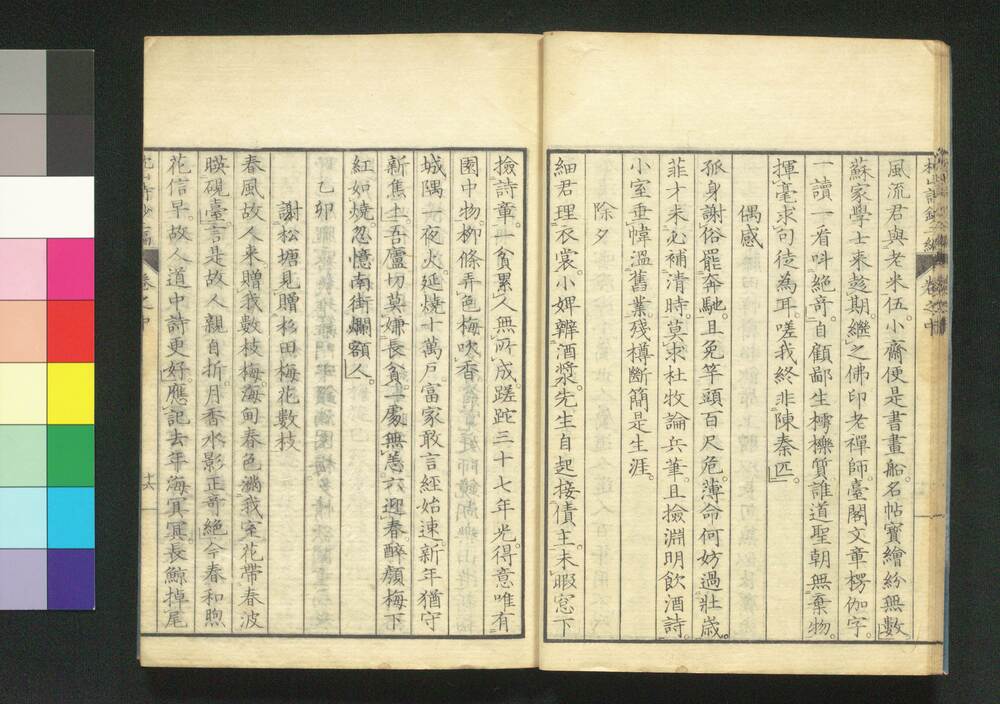 風流君與老米伍。小齋便是書畫船。名帖寶繪紛無數。
蘇家學士來趁期。繼之佛印老禪師。臺閣文章楞伽字。
一讀一看呌絕奇。自顧鄙生樗櫟質。誰道聖朝無棄物。
揮毫求句徒為耳。嗟我終非陳秦匹。
偶感
孤身謝俗罷奔馳。且免竿頭百尺危。薄命何妨過壯歲。
菲才未必補清時。莫求杜牧論兵筆。且撿淵明飲酒詩。
小室垂幃溫舊業。殘樽斷簡是生涯。
除夕
細君理衣裳。小婢辨酒漿。先生自起接債主。未暇窓下
撿詩章。一貧累人無所成。蹉跎三十七年光。得意唯有
園中物。柳條弄色梅吹香。
城隅一夜火延燒十萬戶。富家敢言經始速。新年猶守
新焦土。吾廬切莫嫌長貧。一處無恙亦迎春。醉顏梅下
紅如燒。忽憶南街爛額人。
乙卯
謝松塘見贈杉田梅花數枝
春風故人來。贈我數枝梅。海甸春色滿我室。花帶春波
暎硯臺。言是故人親自折。月香水影正奇絕。今春和煦
花信早。故人道中詩更好。應記去年海冥冥。長鯨掉尾